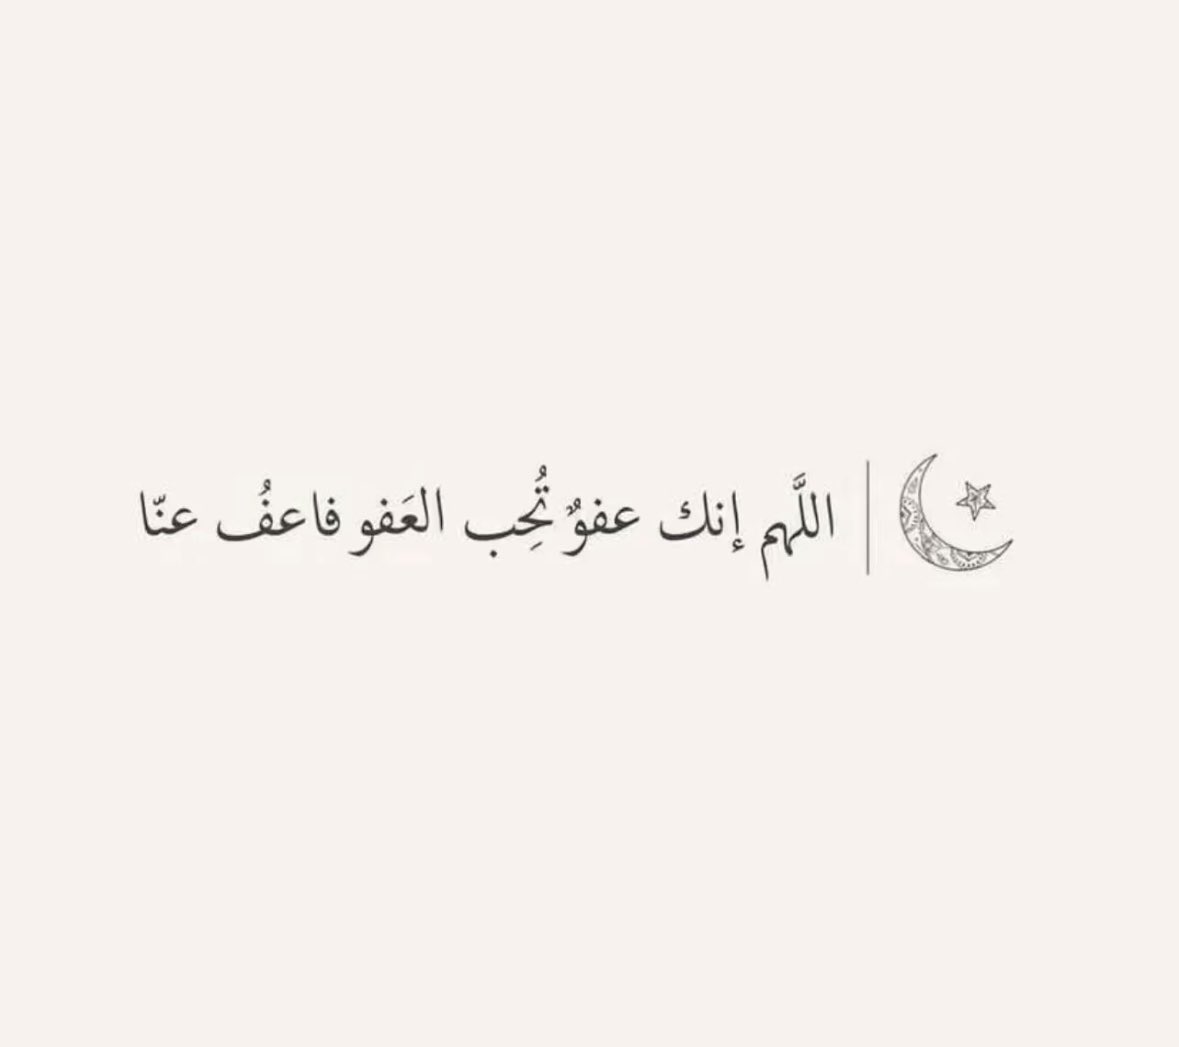 اللَّهم إنك عفوٌ تُحِب العَفو فاعفُ عنّا